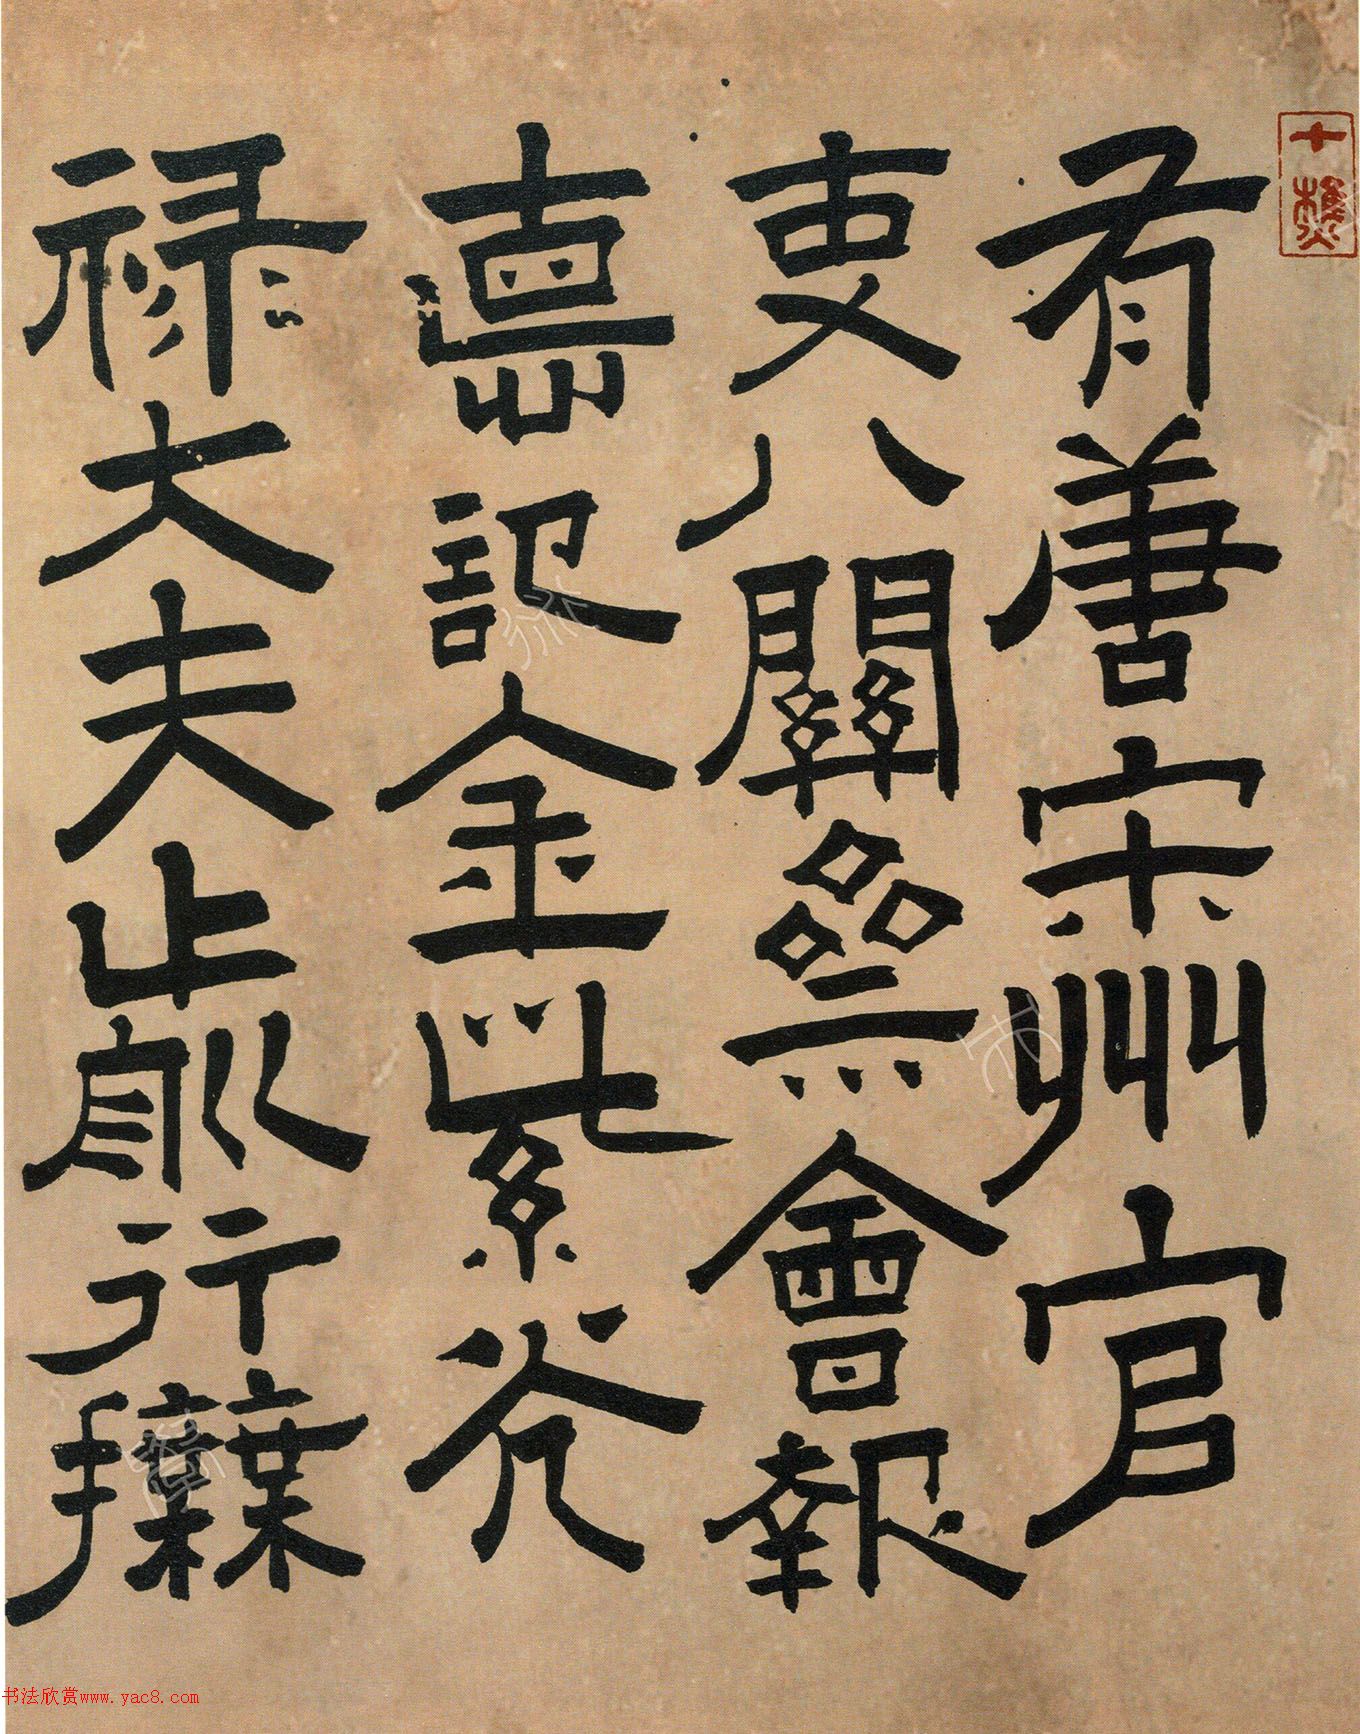 有唐宋州官
吏八關齋會報
惪記金紫光
祿大夫前行撫
十
书法欣赏www.yac8.com